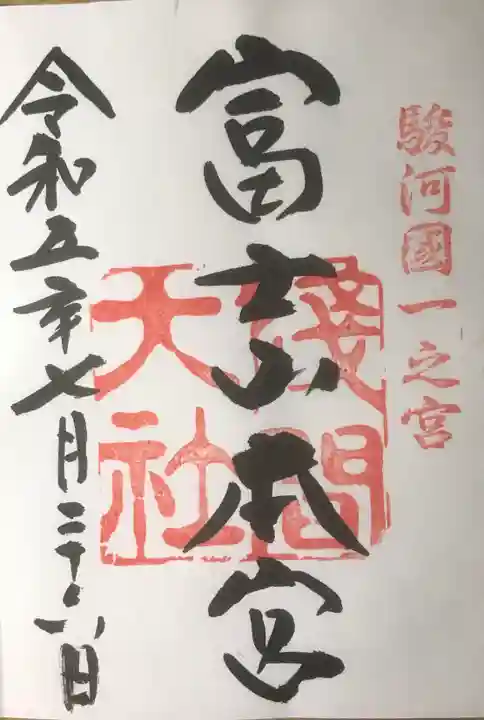 駿河國一之宮
富士山本宮
淺間
大社
令和五年七月二十六日